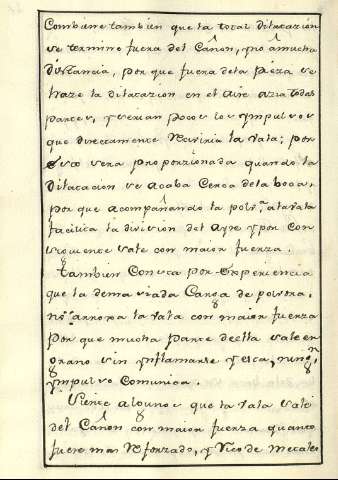 Combiene tambien que la total dilatazion
se termine fuera del Cañon, põ â mucha
distancia, por que fuera dela Pieza se
haze la dilatazion en el aire azia todas
partes, y serian pocos los ympulsos
que directamente reciviria la vala; por
esto sera proporzionada quando la
dilatacion se acaba Cerca dela boca,
por que acompañando la polv.ª ala vala
facilita la division del Ayre y por con
siguiente sale con maior fuerza.
Tambien Consta por experiencia
que la demasiada Carga de polvora,
no arroxa la vala con maior fuerza
por que mucha parte de ella sale en
grano sin ynflamarse y esta, ningn
ympulso Comunica.
Siente alguno que la vala sale
del Cañon con maior fuerza quanto
fuere mas reforzado, y rico de metales